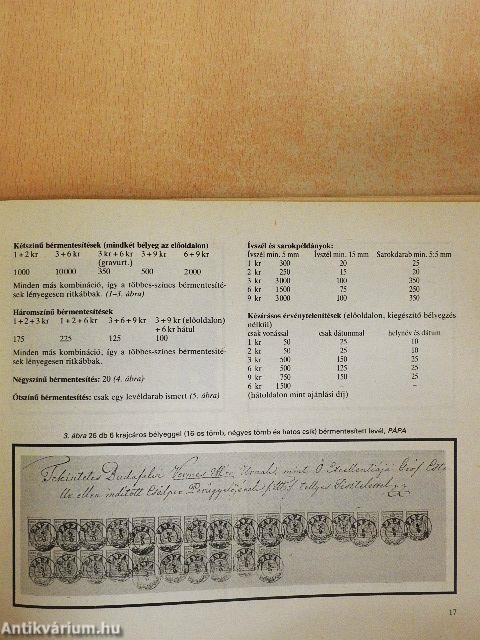 Kétszínű bérmentesítések (mindkét bélyeg az előoldalon)
1+2 kr 3+6 kr 3 kr+6 kr 3+9 kr 6+9 kr
(gravurt.)
1000 10000 350 500 2000
Minden más kombináció, így a többes-színes bérmentesíté-
sek lényegesen ritkábbak. (1–3. ábra)
Háromszínű bérmentesítések
1+2+3 kr 1+2+6 kr 3+6+9 kr 3+9 kr (előoldalon)
+6 kr hátul
175 225 125 100
Minden más kombináció, így a többes-színes bérmentesíté-
sek lényegesen ritkábbak.
Négyszínű bérmentesítés: 20 (4. ábra)
Ötszínű bérmentesítés: csak egy levéldarab ismert (5. ábra)
Ívszél és sarokpéldányok:
Ívszél min. 5 mm Ívszél min. 15 mm Sarokdarab min. 5:5 mm
1 kr 300 20 25
2 kr 250 15 20
3 kr 3000 100 350
6 kr 1500 75 250
9 kr 3000 100 350
Kézírásos érvénytelenítések (előoldalon, kiegészítő bélyegzés
nélkül)
csak vonással csak dátummal helynév és dátum
1 kr 50 25 10
2 kr 50 25 10
3 kr 500 150 25
6 kr 500 125 25
9 kr 750 150 25
6 kr 1500 –
(hátoldalon mint ajánlási díj)
3. ábra 26 db 6 krajcáros bélyeggel (16 os tömb, négyes tömb és hatos csík) bérmentesített levél, PÁPA
Tekintetes Budafalvi Vermes Urnak, mint Ő Excellentiája Gróf
ellen indított tellyes tisztelettel
17
Antikvárium.hu